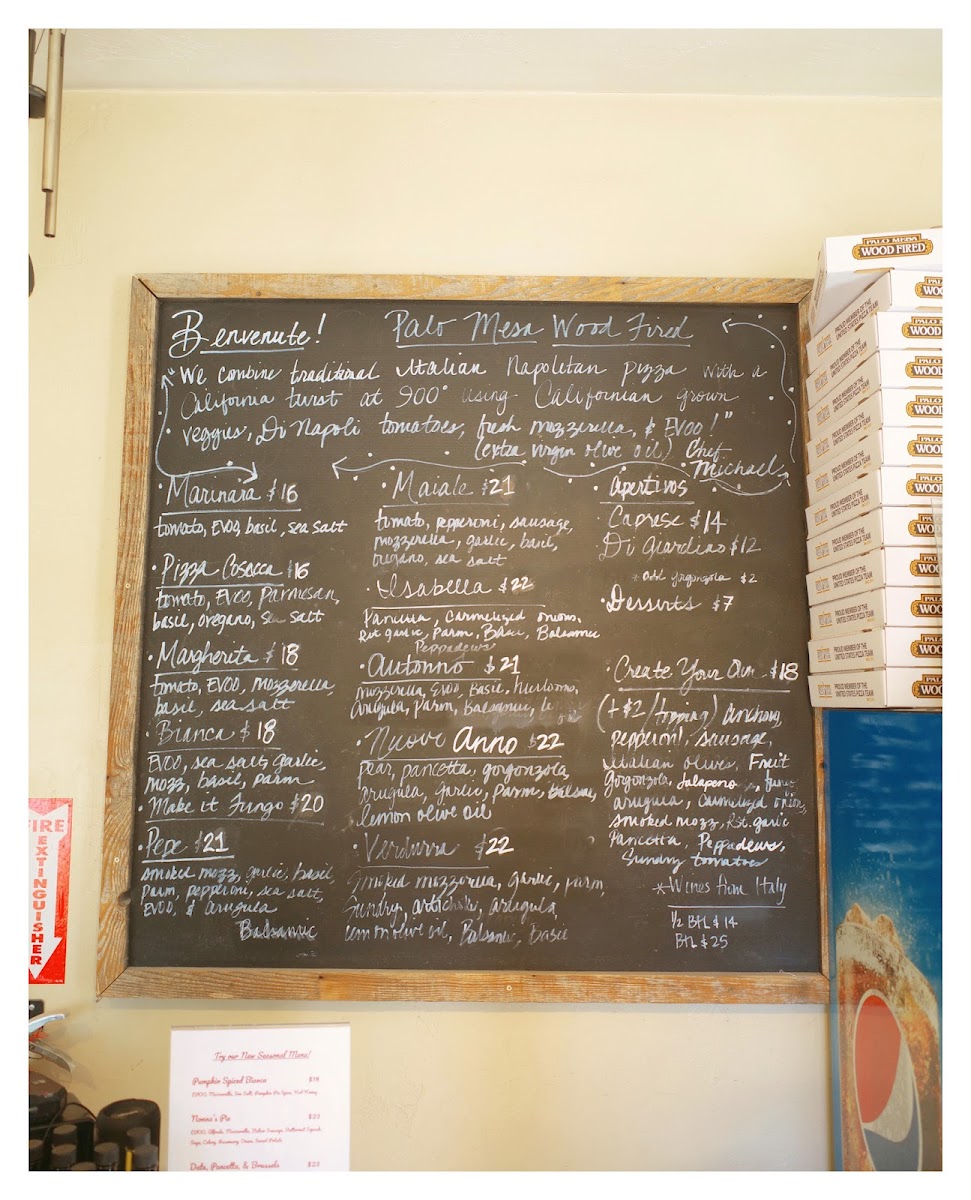 Benvenute!
Palo Mesa Wood Fired
"We combine traditional Italian Napoletan pizza with a
California twist at 900° using Californian grown
veggies, Di Napoli tomatoes, fresh mozzerella, & EVOO!"
(extra virgin olive oil) Chef
Michael
Marinara $16
tomato, EVOO, basil, sea salt
· Pizza Cosacca $16
tomato, EVOO, Parmesan,
basil, oregano, sea salt
· Margherita $18
tomato, EVOO, mozzerella,
basil, sea salt
· Bianca $18
EVOO, sea salt, garlic,
mozz, basil, parm
· Make it Fungo $20
· Pepe $21
smoked mozz, garlic, basil,
parm, pepperoni, sea salt,
EVOO, & arugula
Balsamic
· Maiale $21
tomato, pepperoni, sausage,
mozzerella, garlic, basil,
oregano, sea salt
· Isabella $22
Pancetta, Carmelized onions,
Rst garlic, Parm, Basil, Balsamic
Peppadews
· Autonno $21
mozzerella, EVOO, Basil, Heirlooms,
Arugula, Parm, Balsamic,
· Nuovo Anno $22
pear, pancetta, gorgonzola,
arugula, garlic, parm, balsamic,
lemon olive oil
· Verdurra $22
Smoked mozzerella, garlic, parm,
Sundry, artichoke, arugula,
lemon olive oil, Balsamic, Basil
Apertivos
· Caprese $14
Di Giardino $12
* add gorgonzola $2
· Desserts $7
· Create Your Own $18
(+$2/topping) anchovy,
pepperoni, sausage,
italian olives, Fruit
gorgonzola, Jalapeno
arugula, Carmelized onion,
smoked mozz, Rst. garlic
Pancetta, Peppadews,
Sundry tomatoes
* Wines from Italy
½ Btl $14
Btl $25
PALO MESA
WOOD FIRED
PROUD MEMBER OF THE
UNITED STATES PIZZA TEAM
FIRE
EXTINGUISHER
Try our New Seasonal Menu!
Pumpkin Spiced Bianca $19
Nonno's Pie $23
Date, Pancetta, & Brussels $23